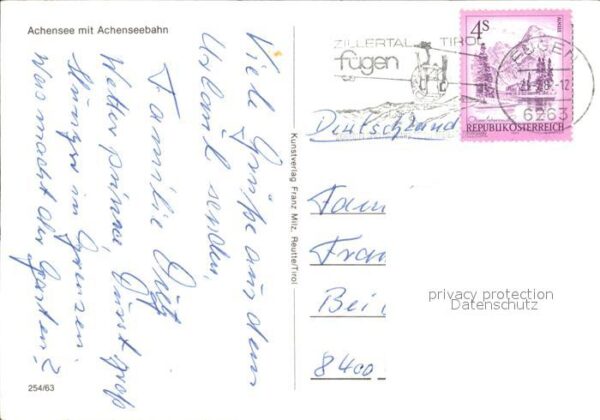 Achensee mit Achenseebahn
Viele Grüße aus dem
Urlaub senden,
Familie
Wetter prima, Durst groß
Hunger in Grenzen.
Was macht der Garten?
254/63
Kunstverlag Franz Milz, Reutte/Tirol
ZILLERTAL TIROL
fügen
FÜGEN
6263
4S
ALMSEE
REPUBLIK ÖSTERREICH
Deutschland
Fam
Fran
Bei
8400
privacy protection
Datenschutz